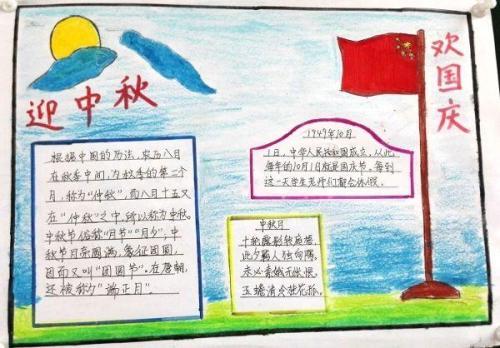 迎中秋
欢国庆
根据中国的历法,农历八月
在秋季中间,为秋季的第二个
月,称为"仲秋",而八月十五又
在"仲秋"之中,所以称为中秋。
中秋节俗称"月节""月夕",中
秋节月亮圆满,象征团圆,
因而又叫"团圆节"。在唐朝,
还被称为"端正月"。
1949年10月
1日,中华人民共和国成立,从此,
每年的10月1日就是国庆节,每到
这一天学生老师们都会休假。
中秋月
十轮霜影转庭梧,
此夕羁人独向隅。
未必素娥无怅恨,
玉蟾清冷桂花孤。